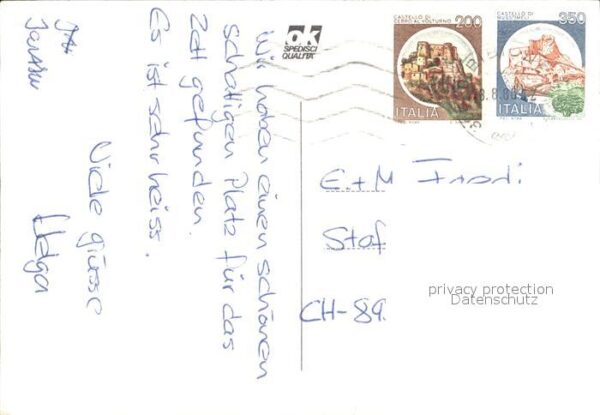 Wir haben einen schönen
schattigen Platz für das
Zelt gefunden.
Es ist sehr heiss.
Viele grüsse
Helga
ok
SPEDISCI
QUALITA'
CASTELLO DI
CERRO AL VOLTURNO
200
ITALIA
CASTELLO DI
MUSSOMELI
350
ITALIA
E + M
Staf
CH-89
privacy protection
Datenschutz